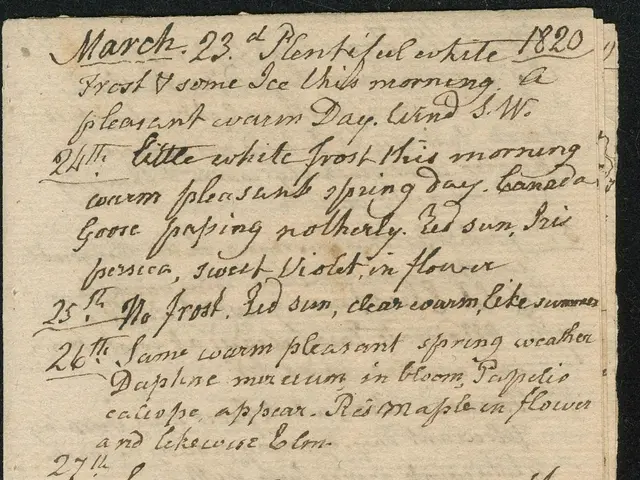 March. 23.d Plentiful white 1820
Frost & some Ice this morning, a
pleasant warm Day. Wind S.W.
24th. little white frost this morning
warm pleasant spring day. Canada
Goose paſsing notherly. Red sun, Iris
persica, sweet Violet, in flower
25.th No frost. Red sun, clear warm, like summer
26th. Same warm pleasant spring weather
Daphne mezeum, in bloom, Papelio
caliope, appear. Red Maple in flower
and likewise Elm.
27th